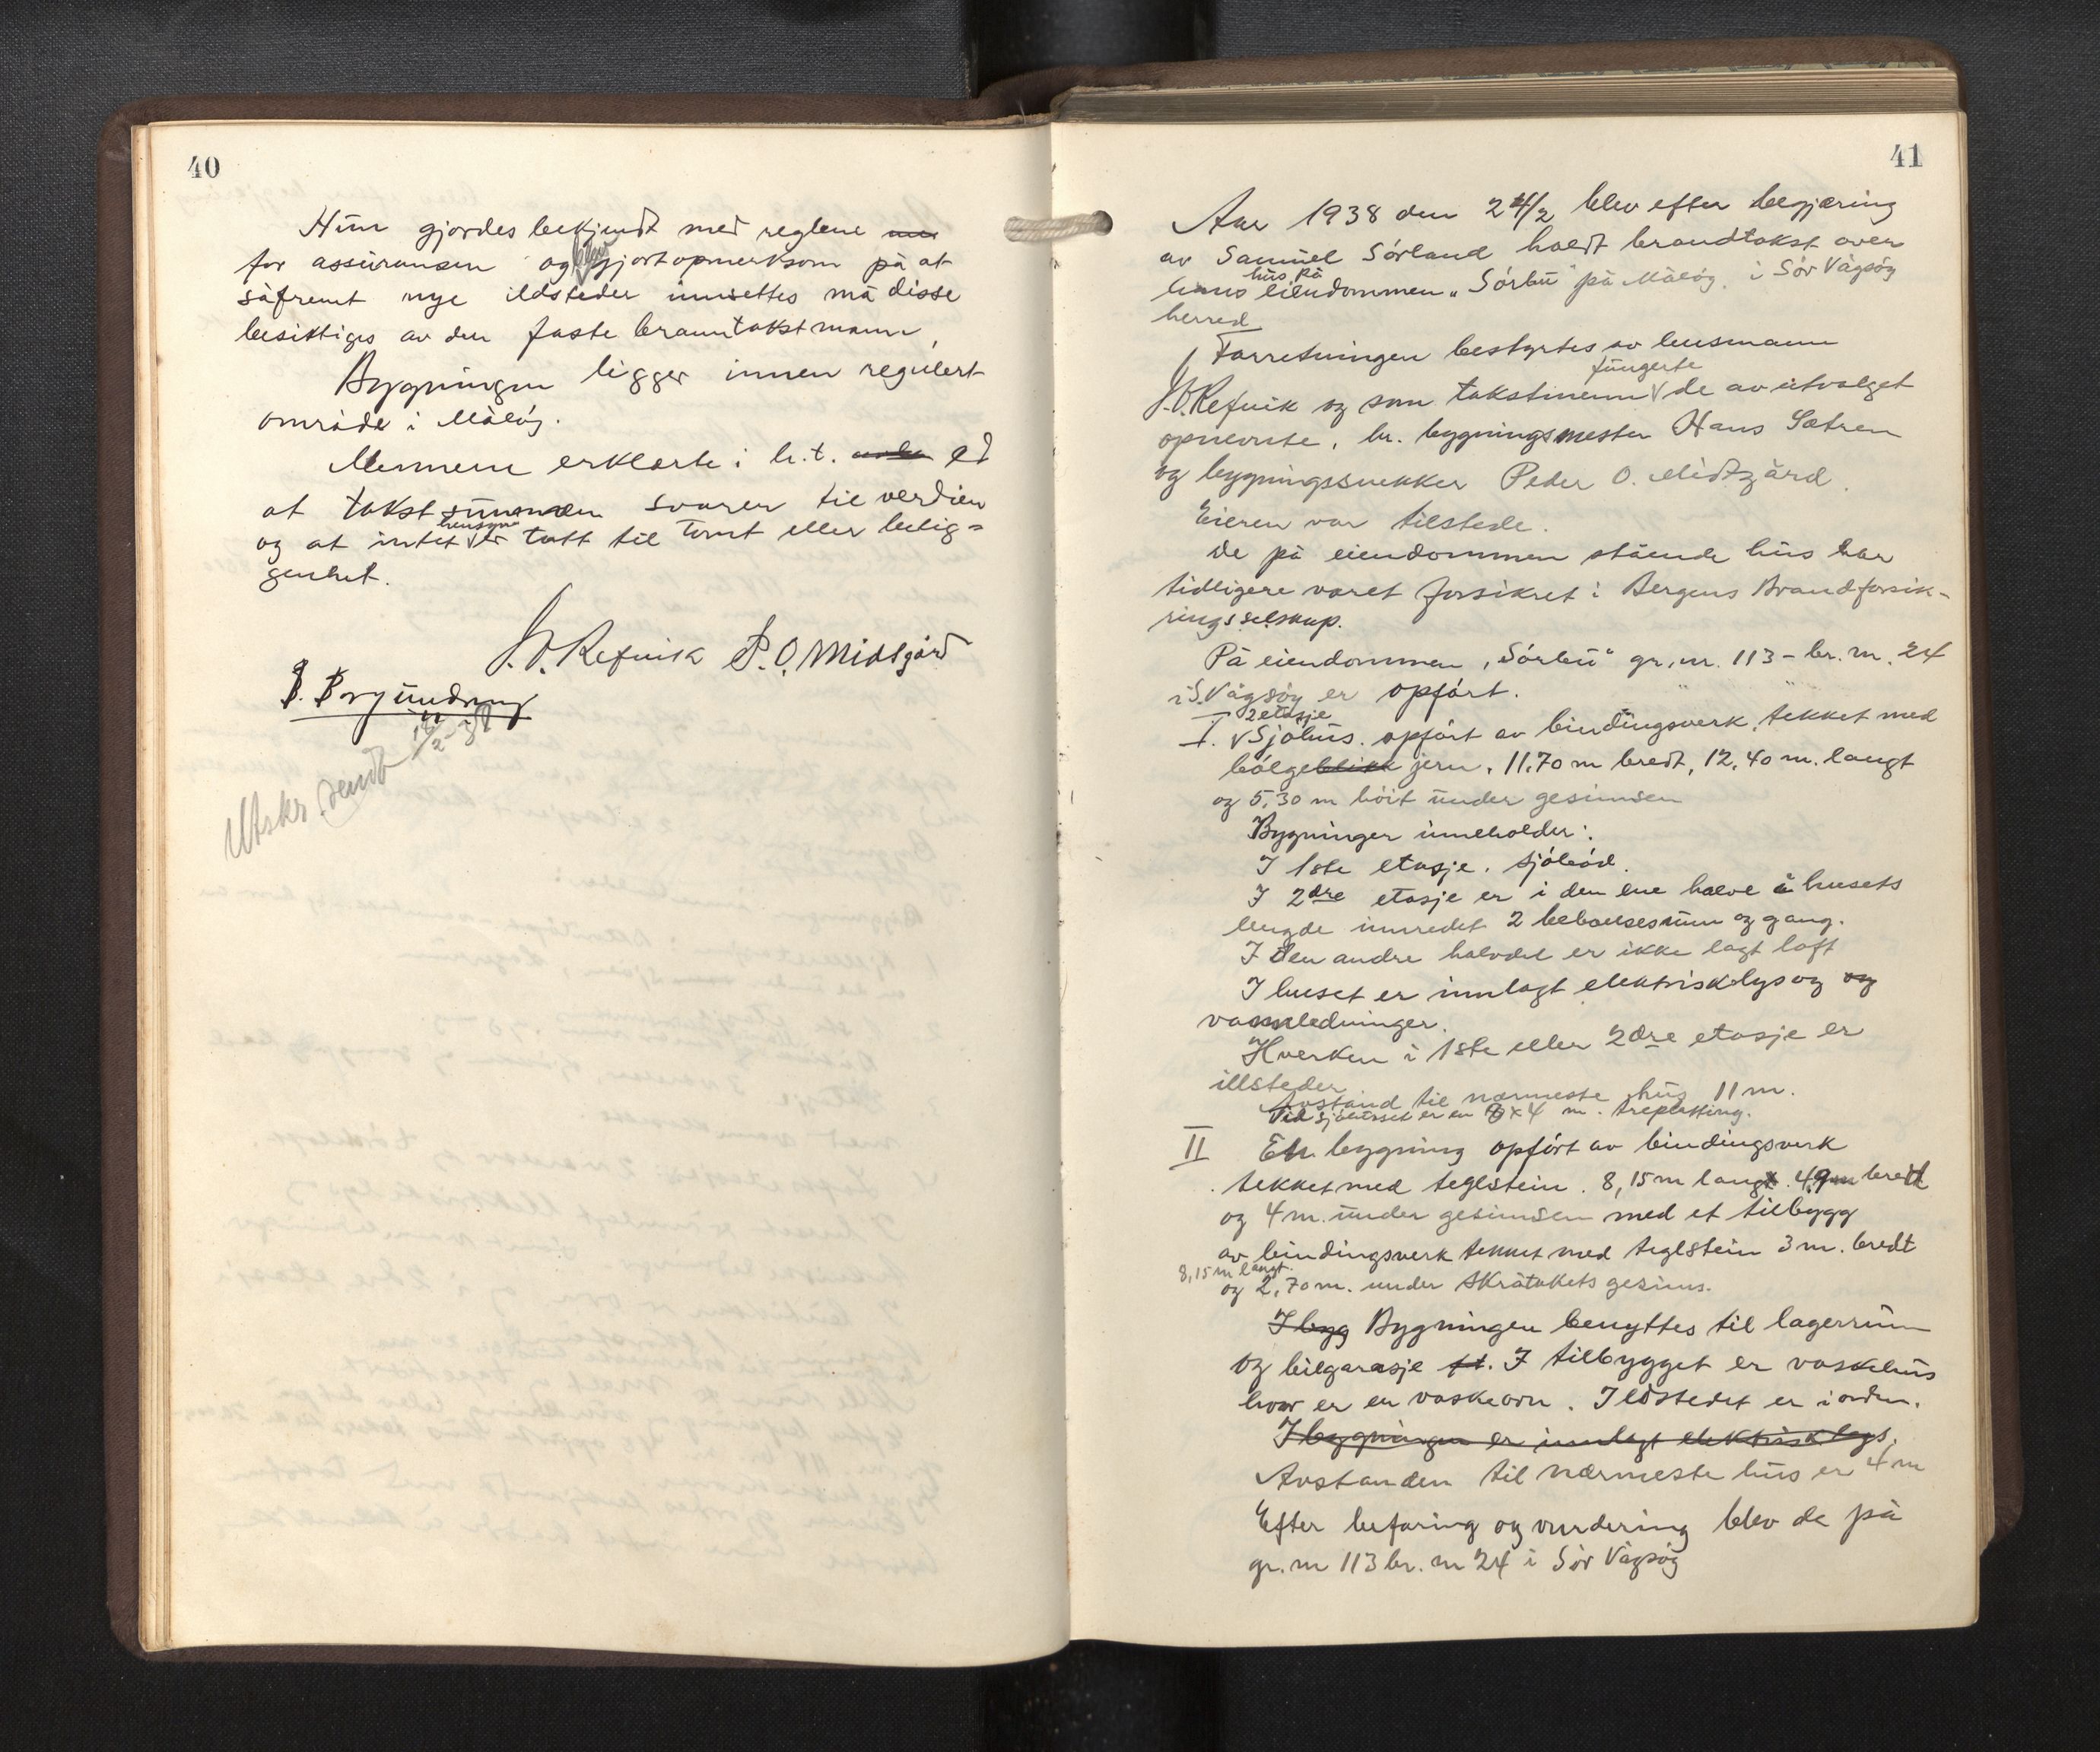 40
Hun gjordes bekjendt med reglene
for assuransen og blev gjort opmerksom på at
såfremt nye ildsteder innsettes må disse
besiktiges av den faste branntakstmann,
Bygningen ligger innen regulert
område i Måløy.
Mennene erklærte i h.t. ed
at takstsummen svarer til verdien
hensyn
og at intet er tatt til tomt eller belig=
genhet.
J. O. Refvik P. O. Midtgård
B. Borgundvåg
Utskr. sendt
41
Aar 1938 den 24/2 blev efter begjæring
av Samuel Sørland holdt brandtakst over
hus på
hans eiendommen „Sørbu" på Måløy i Sør Vågsøy
herred
Forretningen bestyrtes av lensmann
fungerte
J.O. Refvik og som takstmenn de av utvalget
opnevnte, hr. bygningsmester Hans Sætren
og bygningssnekker Peder O. Midtgård.
Eieren var tilstede.
De på eiendommen stående hus har
tidligere været forsikret i Bergens Brandforsik-
ringsselskap.
På eiendommen „Sørbu" gr.nr. 113 - br. nr. 24
i S. Vågsøy er opført.
2 etasje
I. Sjøhus. opført av bindingsverk, tekket med
bølgeblikk jern, 11,70 m bredt, 12,40 m. langt
og 5,30 m høit under gesimsen
Bygninger inneholder:
I 1ste etasje. sjøbod.
I 2dre etasje er i den ene halve å husets
lengde innredet 2 beboelsesrum og gang.
I den andre halvdel er ikke lagt loft
I huset er innlagt elektrisk lys og og
vannledninger.
Hverken i 1ste eller 2dre etasje er
illsteder
Avstand til nærmeste hus 11 m.
Ved sjøhuset er en 8x4 m. trepletting.
II En bygning opført av bindingsverk
tekket med teglstein. 8,15 m langt. 4,9 m bredt
og 4 m. under gesimsen med et tilbygg
av bindingsverk tekket med teglstein 3 m. bredt
8,15 m langt.
og 2,70 m. under skråtakets gesims.
I byg Bygningen benyttes til lagerrum
og bilgarasje . I tilbygget er vaskehus
hvor er en vaskeovn. Ildstedet er i orden.
I bygningen er innlagt elektrisk lys.
Avstanden til nærmeste hus er 4 m
Efter befaring og vurdering blev de på
gr. nr 113 br. nr 24 i Sør Vågsøy